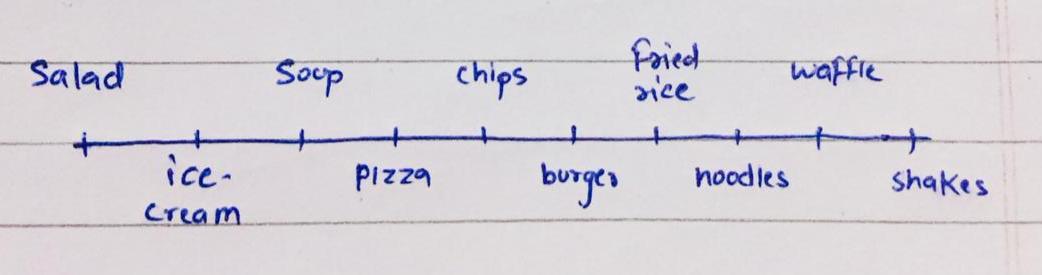 Salad Soup chips Fried rice waffle
ice-cream pizza burger noodles shakes